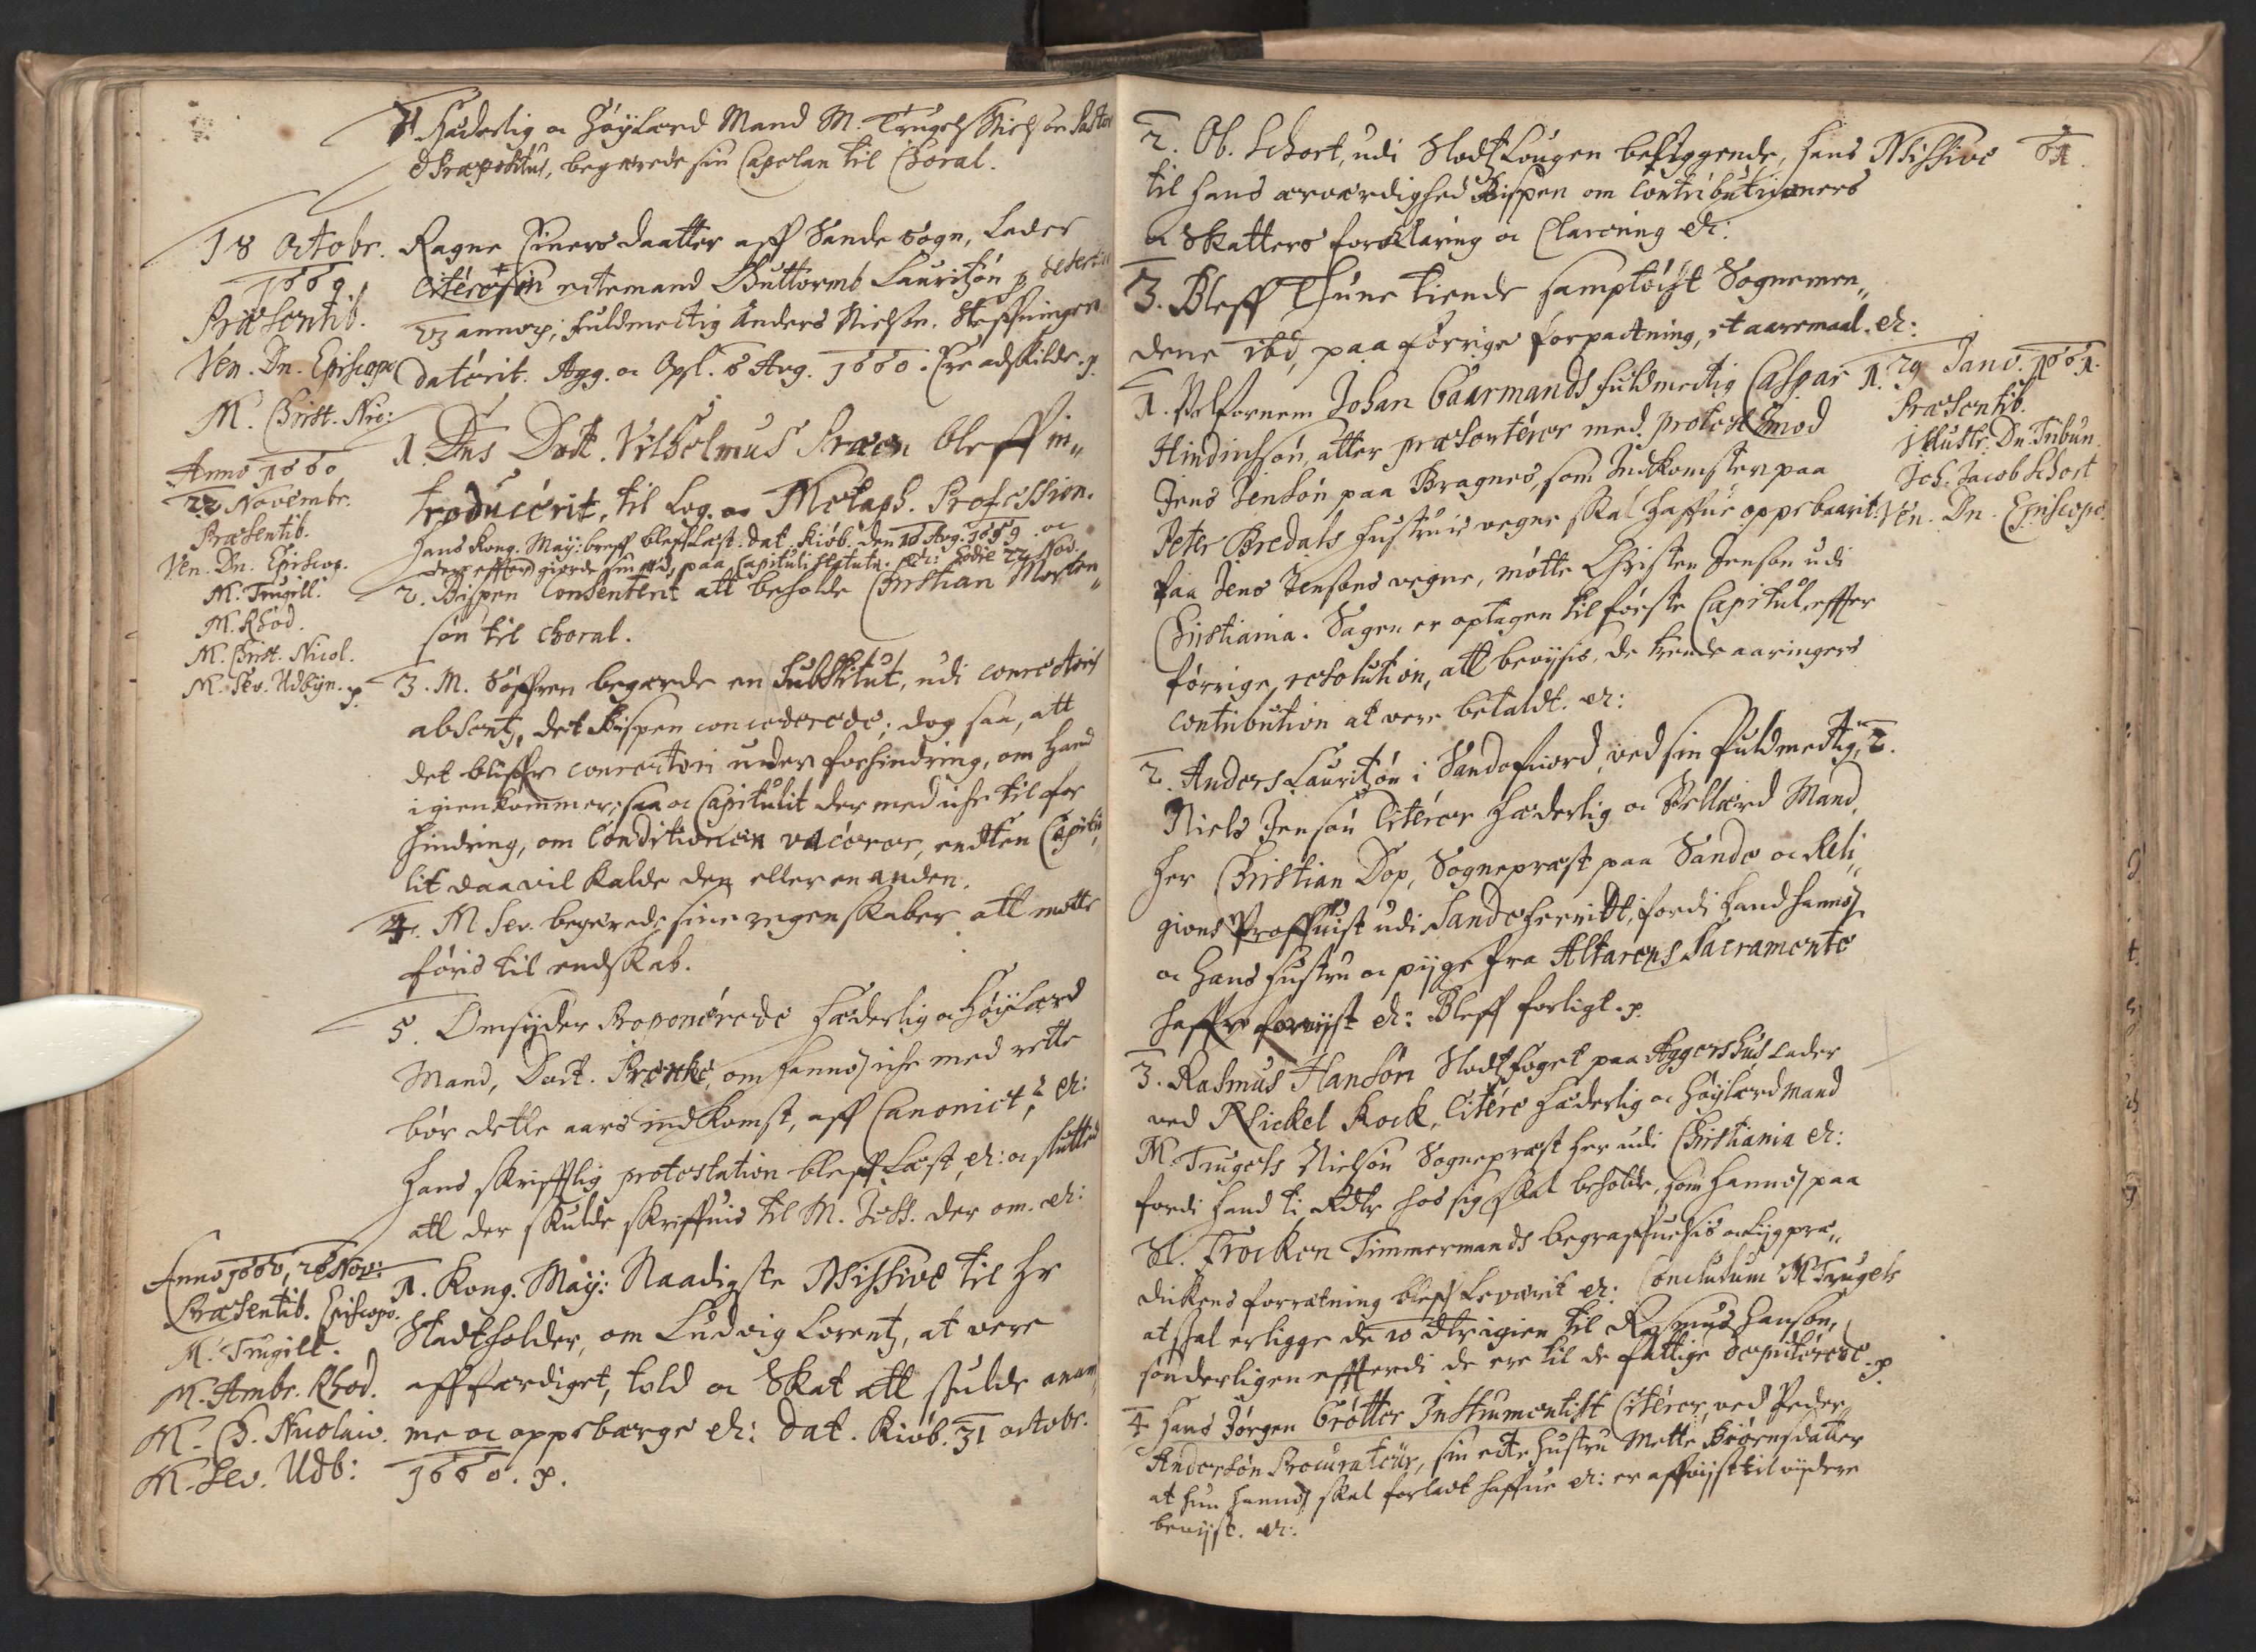 4. Hæderlig oc Høylærd Mand M. Trugels Nielsøn Pastor
& Præpositus, begærede sin Capelan til Choral.
18 Octobr.
1660
Præsentib.
Ven. Dn. Episcopo
M. Christ. Nic:
Ragne Einersdaatter aff Sande Sogn, lader
citere sin ectemand Guttormb Lauritzøn p desertio
annorp; fuldmectig Anders Nielsøn. Steffningen
daterit. Agg. oc Opl. 6 Aug. 1660. Ere adskilde. p.
Anno 1660
22 Novembr.
Præsentib.
Ven. Dn. Episcop.
M. Trugill:
M. Rhod.
M. Christ. Nicol.
M. Sev. Udbyn. p.
1. Dns Doct. Vilhelmus bleff in„
troducerit, til Log. oc Metaph. Profession.
Hans Kong. May: breff bleff læst. dat. Kiøb. den 16 Aug. 1659. oc
der effter giorde sin æd, paa Capituli statuta. &c: hodie 22 Nov.
2. Bispen Consenterit att beholde Christian Morten„
søn til choral.
3. M. Søffren begærde en Substitut, udi conrectoris
absentz, det Bispen concederede; dog saa, att
det bliffr conrectori uden forhindring, om hand
igienkommer; saa oc Capitulit der med iche til for
hindring, om Conditionen vacerer, endten Capitu„
lit daa vil kalde den eller en anden.
4. M Sev. begærede sine regenskaber att motte
føris til endskab.
5. Omsyder Proponerede Hæderlig oc Høylærd
Mand, Doct. om hannoz iche med rette
bør dette aars indkomst, aff Canonict? &c:
Hans skrifftlig protestation bleff læst, &c: oc sluttid
att der skulde skriffuis til M. der om. &c:
Anno 1660, 28 Nov:
Præsentib. Episcopo.
M. Trugill.
M. Ambr. Rhod.
M. Ch. Nicolai.
M. Sev. Udb:
1. Kong. May: Naadigste Missive til Hr
Stadtholder, om Ludvig Lorentz, at vere
affærdiget, told oc Skat att skulde anam„
me oc oppebærge &c: Dat. Kiøb. 31 octobr.
1660. p.
61
2. Ob. Schort, udi Slotz Lougen besiggende, hans Missive
til hans ærværdighed Bispen om Contributioners
oc Skatters forklaring oc Clarering &c:
3. Bleff Thune tiende samptøcht Sognemen„
dene ibd, paa forrige forpactning, &c:
29 Janv. 1661.
Præsentib.
Illustr. Dn. Tribun.
Joh. Jacob Schort
Ven. Dn. Episcopo.
1. Velfornem Johan Gaarmands fuldmectig Caspar
Hindrichsøn, atter præsenterer med protest imod
Jens Jensøn paa Bragnes, som Indkomsten paa
Peter Bredals hustruis vegne skal haffue oppebaarit.
Paa Jens Jensøns vegne, møtte Christen Jensøn udi
Christiania. Sagen er optagen til første Capitul, effter
forrige resolution, att bevysis, de trende aaringers
contribution at vere betaldt. &c:
2. Anders Lauritzøn i Sandefiord, ved sin fuldmectig,
Niels Jensøn Citerer Hæderlig oc Vellærd Mand,
Her Christian Dop, Sognepræst paa Sande oc Reli„
gions Proffuist udi Sandeherritt, fordi hand hannoz
oc hans hustru oc pyge fra Altarens Sacramente
haffr forvyst &c: Bleff forligt. p.
3. Rasmus Hansøn Slotzfoget paa Aggershus lader
ved Mickel Kock, Citere Hæderlig oc Høylærd Mand
M. Trugels Nielsøn Sognepræst her udi Christiania &c:
fordi hand ti Rdlr hos sig skal beholde, som hannoz paa
Sl. Trocken Timmermands begraffuelsis oc Lygpræ„
dickens forrætning bleff leverit &c: Conclusum M Trugels
at skal erligge de 10 dlr igien til Rasmus Hansøn,
sønderligen effterdi de ere til de fattige deputerede. p.
4 Hans Jørgen Grøtter Instrumentist Citerer, ved Peder
Andersøn Procurateur, sin ecte hustru Mette Biørnsdatter
at hun hannoz skal forladt haffue &c: er affvyst til vydere
bevyst. &c: